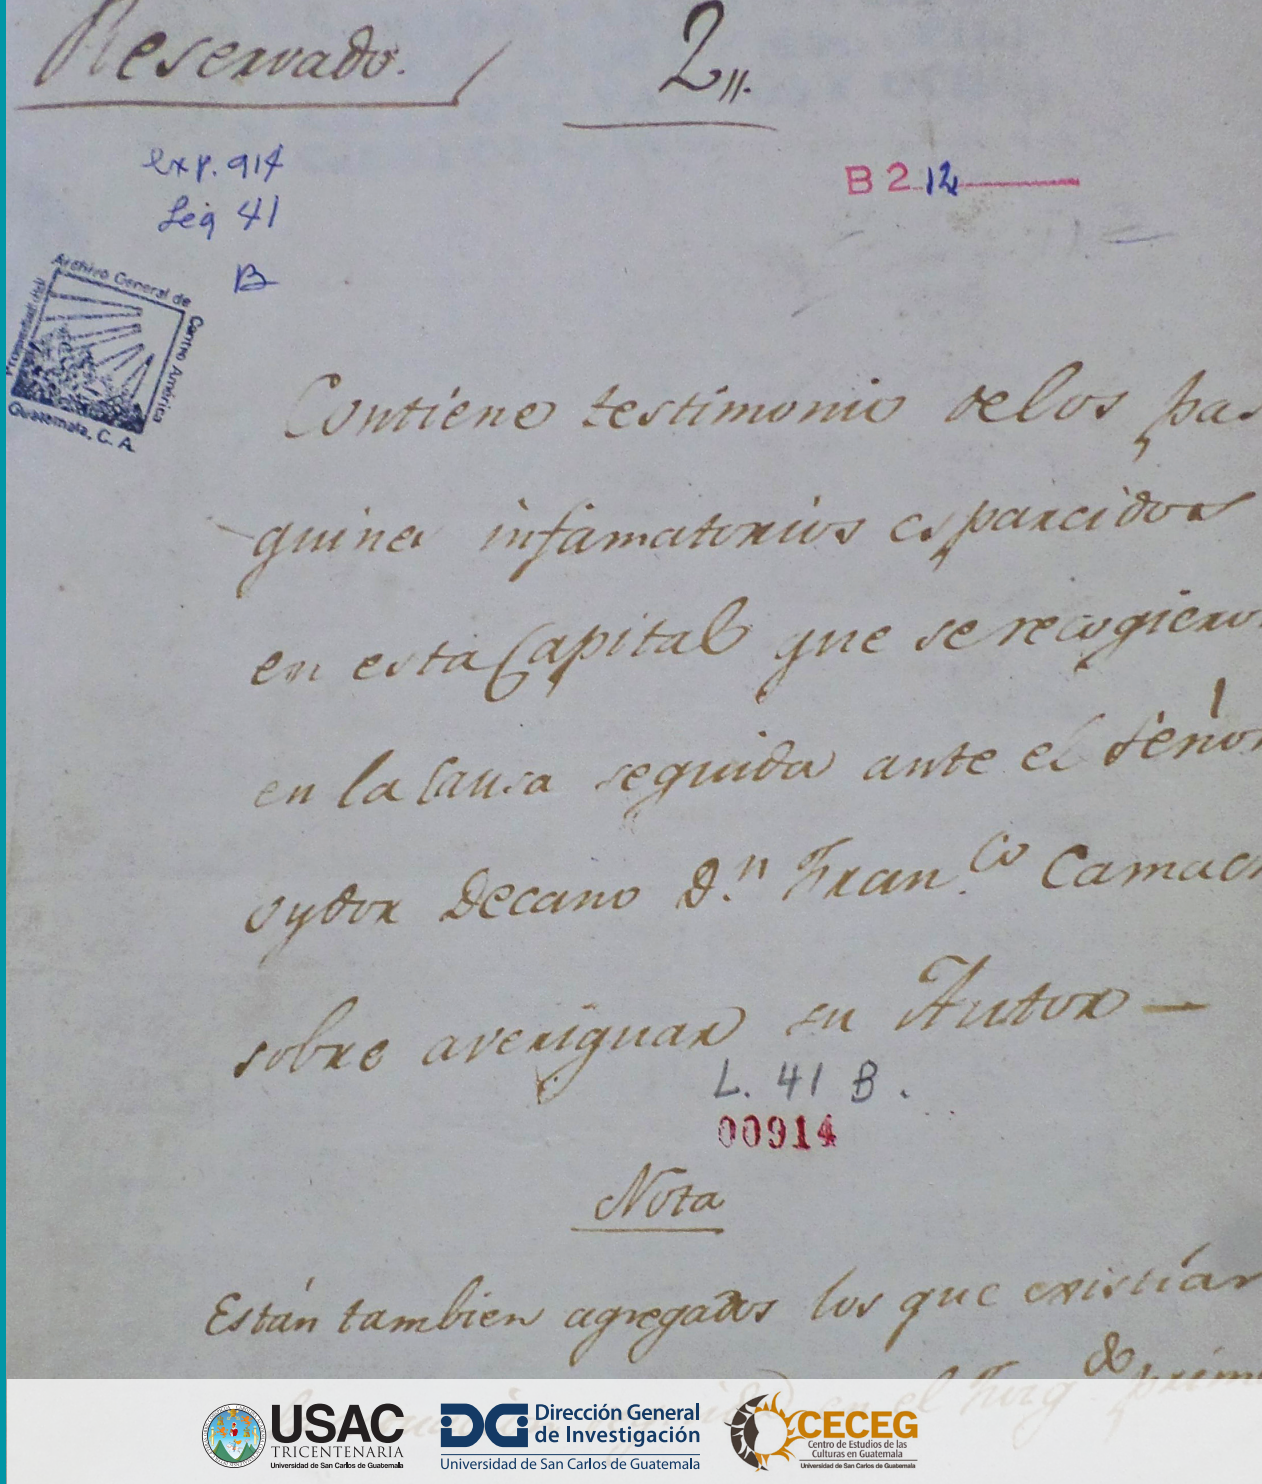 Reservado.
2,,.
exp. 914
Leg 41
B
B 2 12
Archivo General de
Centro América
Guatemala, C. A.
Contiene testimonio delos pas
quines infamatorios esparcidos
en esta Capital que se recogieron
en la Causa seguida ante el Señor
oydor Decano D.n Fran.co Camach
sobre averiguar su Autor —
L. 41 B.
00914
Nota
Están tambien agregados los que existían
en el Juzg.do prim
USAC
TRICENTENARIA
Universidad de San Carlos de Guatemala
DGI
Dirección General
de Investigación
Universidad de San Carlos de Guatemala
CECEG
Centro de Estudios de las
Culturas en Guatemala
Universidad de San Carlos de Guatemala